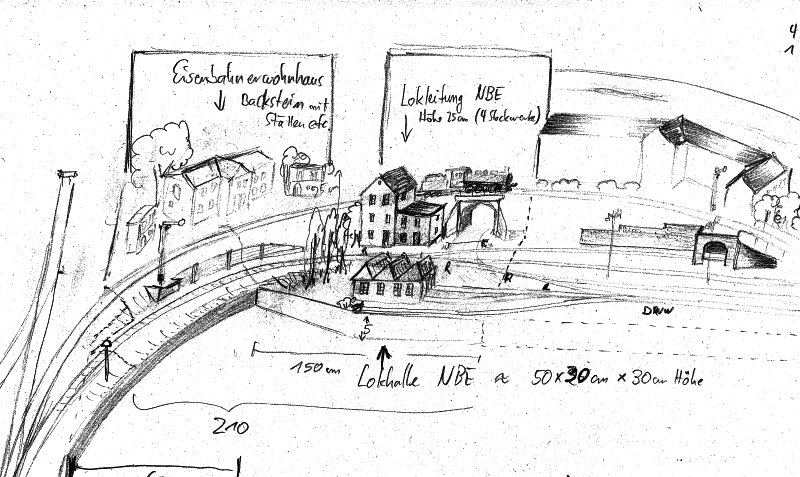 4
1
Eisenbahnerwohnhaus
Backstein mit
Ställen etc.
Lokleitung NBE
Höhe 25cm (4 Stockwerke)
DRVW
5
150cm
Lokhalle NBE ≈ 50x30cm x 30cm Höhe
210